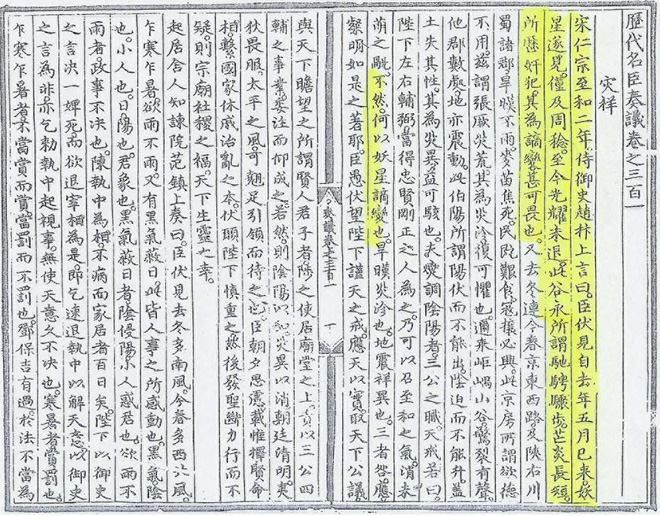 歷代名臣奏議卷之三百一
灾祥
宋仁宗至和二年侍御史趙抃上言曰臣伏見自去年五月已來妖
星遂見僅及周稔至今光耀未退此谷永所謂馳騁驟步芒炎長短
所歷奸犯其為謫變甚可畏也又去冬連今春京東西路及陝右川
蜀諸郡旱暵不雨麥苗焦死民既艱食寇攘必興此京房所謂欲德
不用茲謂張厥灾荒其為灾沴復可懼也邇來岠嵎山谷驚裂有聲
他郡數處地亦震動此伯陽所謂陽伏而不能出陰迫而不能升蓋
土失其性其為灾異益可駭也夫燮調陰陽者三公之職天戒若曰
陛下左右輔弼當得忠賢剛正之人為之乃可以召至和之氣消未
萌之不然何以妖星謫變也旱暵灾沴也地震祥異也三者咎應
明如是之著耶臣愚伏望陛下謹天之戒應天以實取天下公議
奏議卷之三百一 一
與天下瞻望之所謂賢人君子者陟之使居廟堂之上責以三公四
輔之事業委注而仰成之若然則陰陽以和灾異以消朝廷清明夷
狄畏服太平之風可翹足引領而待之也臣朝夕思慮載惟擇賢命
相繫國家休戚治亂之本伏願陛下慎重之然後發聖斷力行而不
疑則宗廟社稷之福天下生靈之幸
起居舍人知諫院范鎮上奏曰臣伏見去冬多南風今春多西北風
乍寒乍暑欲雨不雨又有黑氣蔽日此皆人事之所感動也黑氣陰
也小人也日陽也君象也黑氣蔽日者陰侵陽小人惑君也欲雨不
雨者政事不決也陳執中為相不病而家居者百日矣陛下以御史
之言決一婢死而欲退宰相為是即乞速退執中以解天意以御史
之言為非亦乞勑執中起視事無使天意久不決也寒暑者賞罰也
乍寒乍暑者不當賞而賞當罰而不罰也鄧保吉有過於法不當為